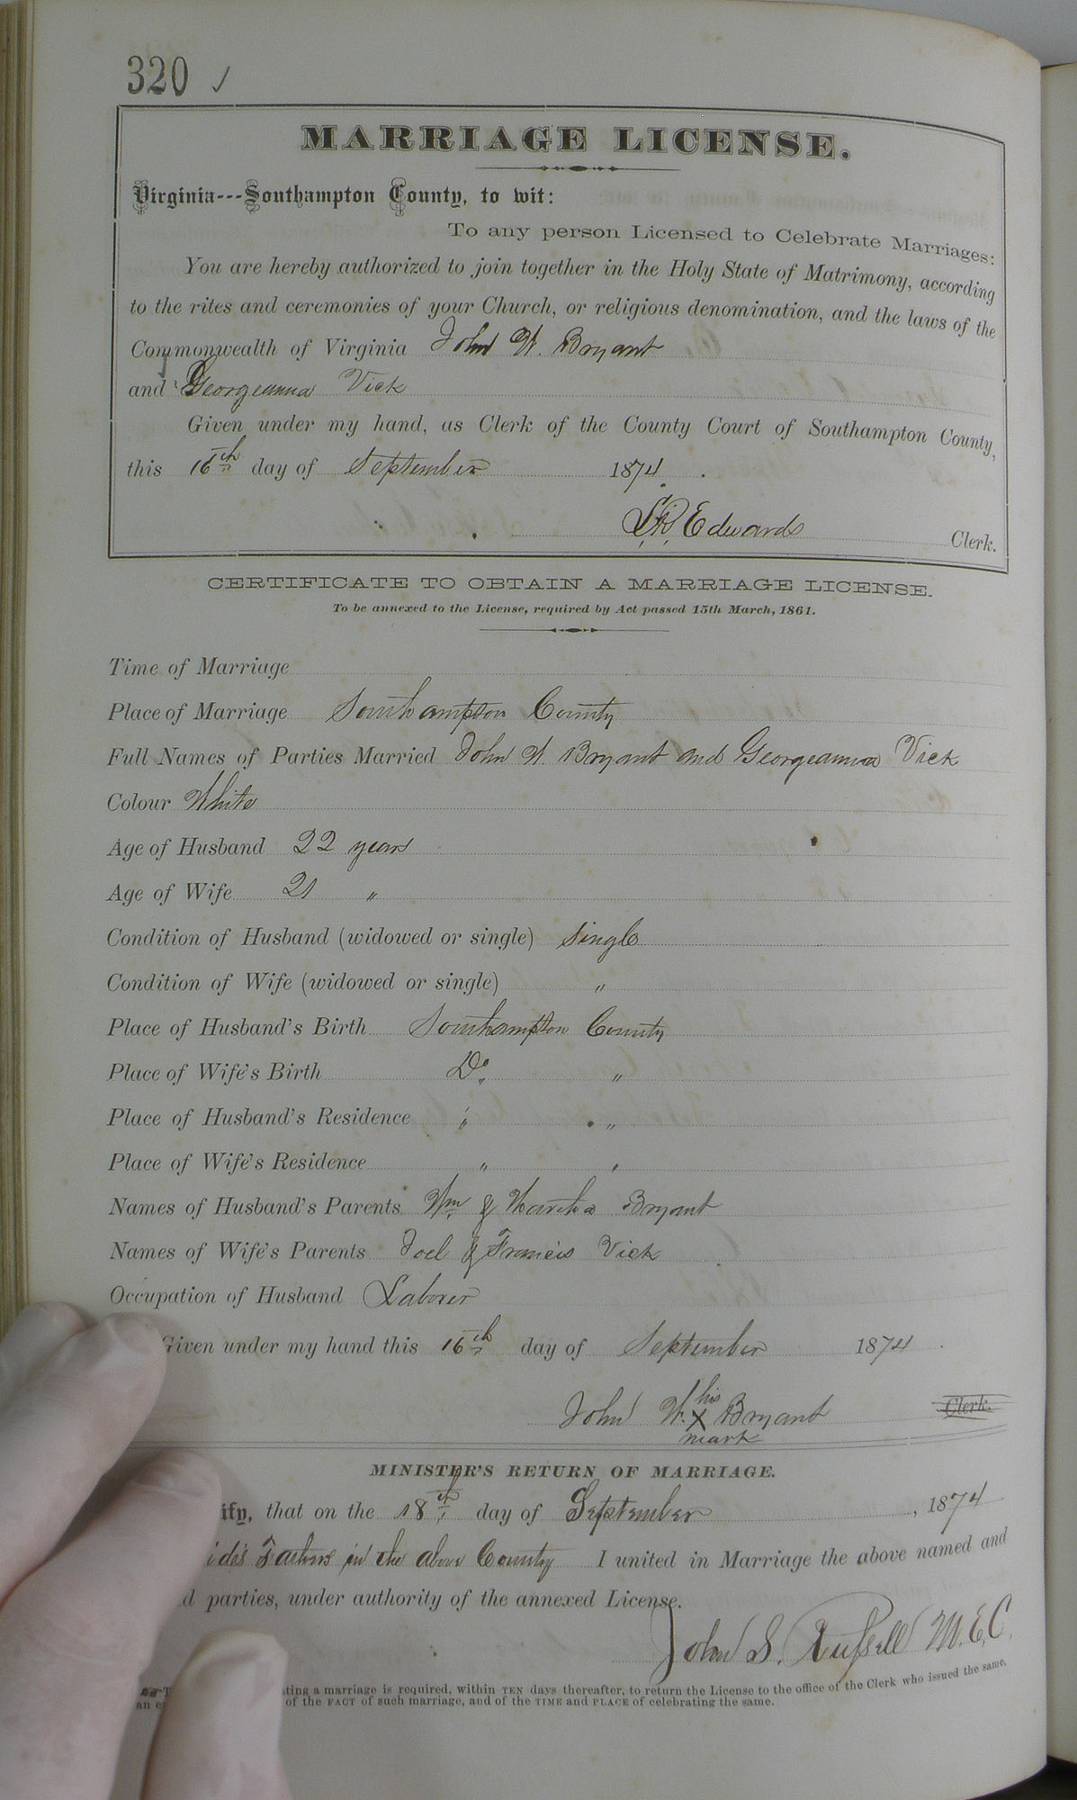 320 ✓
MARRIAGE LICENSE.
Virginia---Southampton County, to wit:
To any person Licensed to Celebrate Marriages:
You are hereby authorized to join together in the Holy State of Matrimony, according
to the rites and ceremonies of your Church, or religious denomination, and the laws of the
Commonwealth of Virginia John W. Bryant
and Georgeanna Vick
Given under my hand, as Clerk of the County Court of Southampton County,
this 16th day of September 1874.
L.R. Edwards Clerk.
CERTIFICATE TO OBTAIN A MARRIAGE LICENSE.
To be annexed to the License, required by Act passed 15th March, 1861.
Time of Marriage
Place of Marriage Southampton County
Full Names of Parties Married John W. Bryant and Georgeanna Vick
Colour White
Age of Husband 22 years
Age of Wife 21 "
Condition of Husband (widowed or single) single
Condition of Wife (widowed or single) "
Place of Husband's Birth Southampton County
Place of Wife's Birth Do. "
Place of Husband's Residence " "
Place of Wife's Residence " "
Names of Husband's Parents Wm & Martha Bryant
Names of Wife's Parents Joel & Francis Vick
Occupation of Husband Laborer
Given under my hand this 16th day of September 1874
his
John W. X Bryant Clerk.
mark
MINISTER'S RETURN OF MARRIAGE.
ify, that on the 18th day of September, 1874
in the above County I united in Marriage the above named and
d parties, under authority of the annexed License.
John S. Russell M.E.C.
ating a marriage is required, within TEN days thereafter, to return the License to the office of the Clerk who issued the same,
of the FACT of such marriage, and of the TIME and PLACE of celebrating the same.